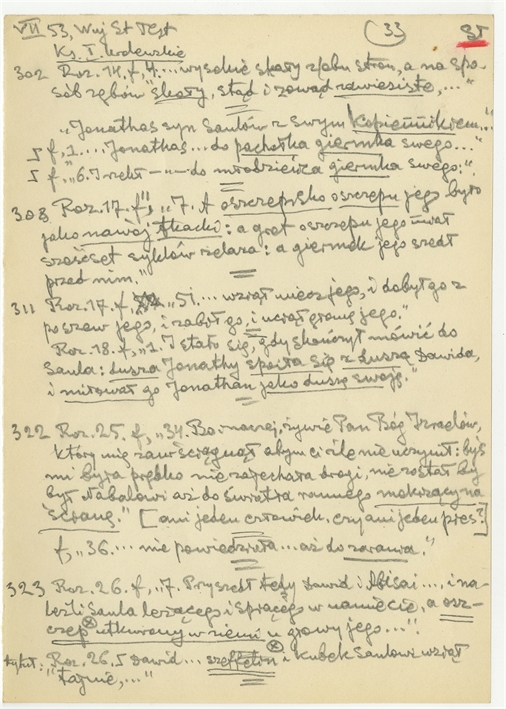 VII 53, Wuj St Test (33) 35
Ks. I. Królewskie
302 Roz. 14. f, 4.... wysokie skały z obu stron, a na spo-
sób zębów skały, stąd i zowąd rozwiesiste,..."
"Jonathas syn Saulów z swym kopiennikiem..."
f, 1.... Jonathas... do pachołka giermka swego..."
f, "6. I rzekł – – do młodzieńca giermka swego:"
308 Roz. 17. f, "7. A oszczepisko oszczepu jego było
jako nawój tkacki: a grot oszczepu jego miał
sześćset syklów żelaza: a giermek jego szedł
przed nim."
311 Roz. 17. f, "51.... wziął miecz jego, i dobył go z
poszew jego, i zabił go, i uciął głowę jego."
Roz. 18. f, "1. I stało się, gdy skończył mówić do
Saula: dusza Jonathy spoiła się z duszą Dawida,
i miłował go Jonathan jako duszę swoję."
322 Roz. 25. f, "34. Bo inaczej, żywie Pan Bóg Izraelów,
który mię zawściągnął abym ci źle nie uczynił: byś
mi była prędko nie zajechała drogi, nie został by
był Nabalowi aż do światła rannego mokrzący na
ścianę." [ani jeden człowiek, czy ani jeden pies?]
f, "36.... nie powiedziała... aż do zarania."
323 Roz. 26. f, "7. Przyszedł tedy Dawid i Abisai..., i na-
leźli Saula leżącego i śpiącego w namiecie, a osz-
czep utkwiony w ziemi u głowy jego...".
tytuł: Roz. 26. Dawid... szeffelin i kubek Saulowi wziął
tajmie,..."